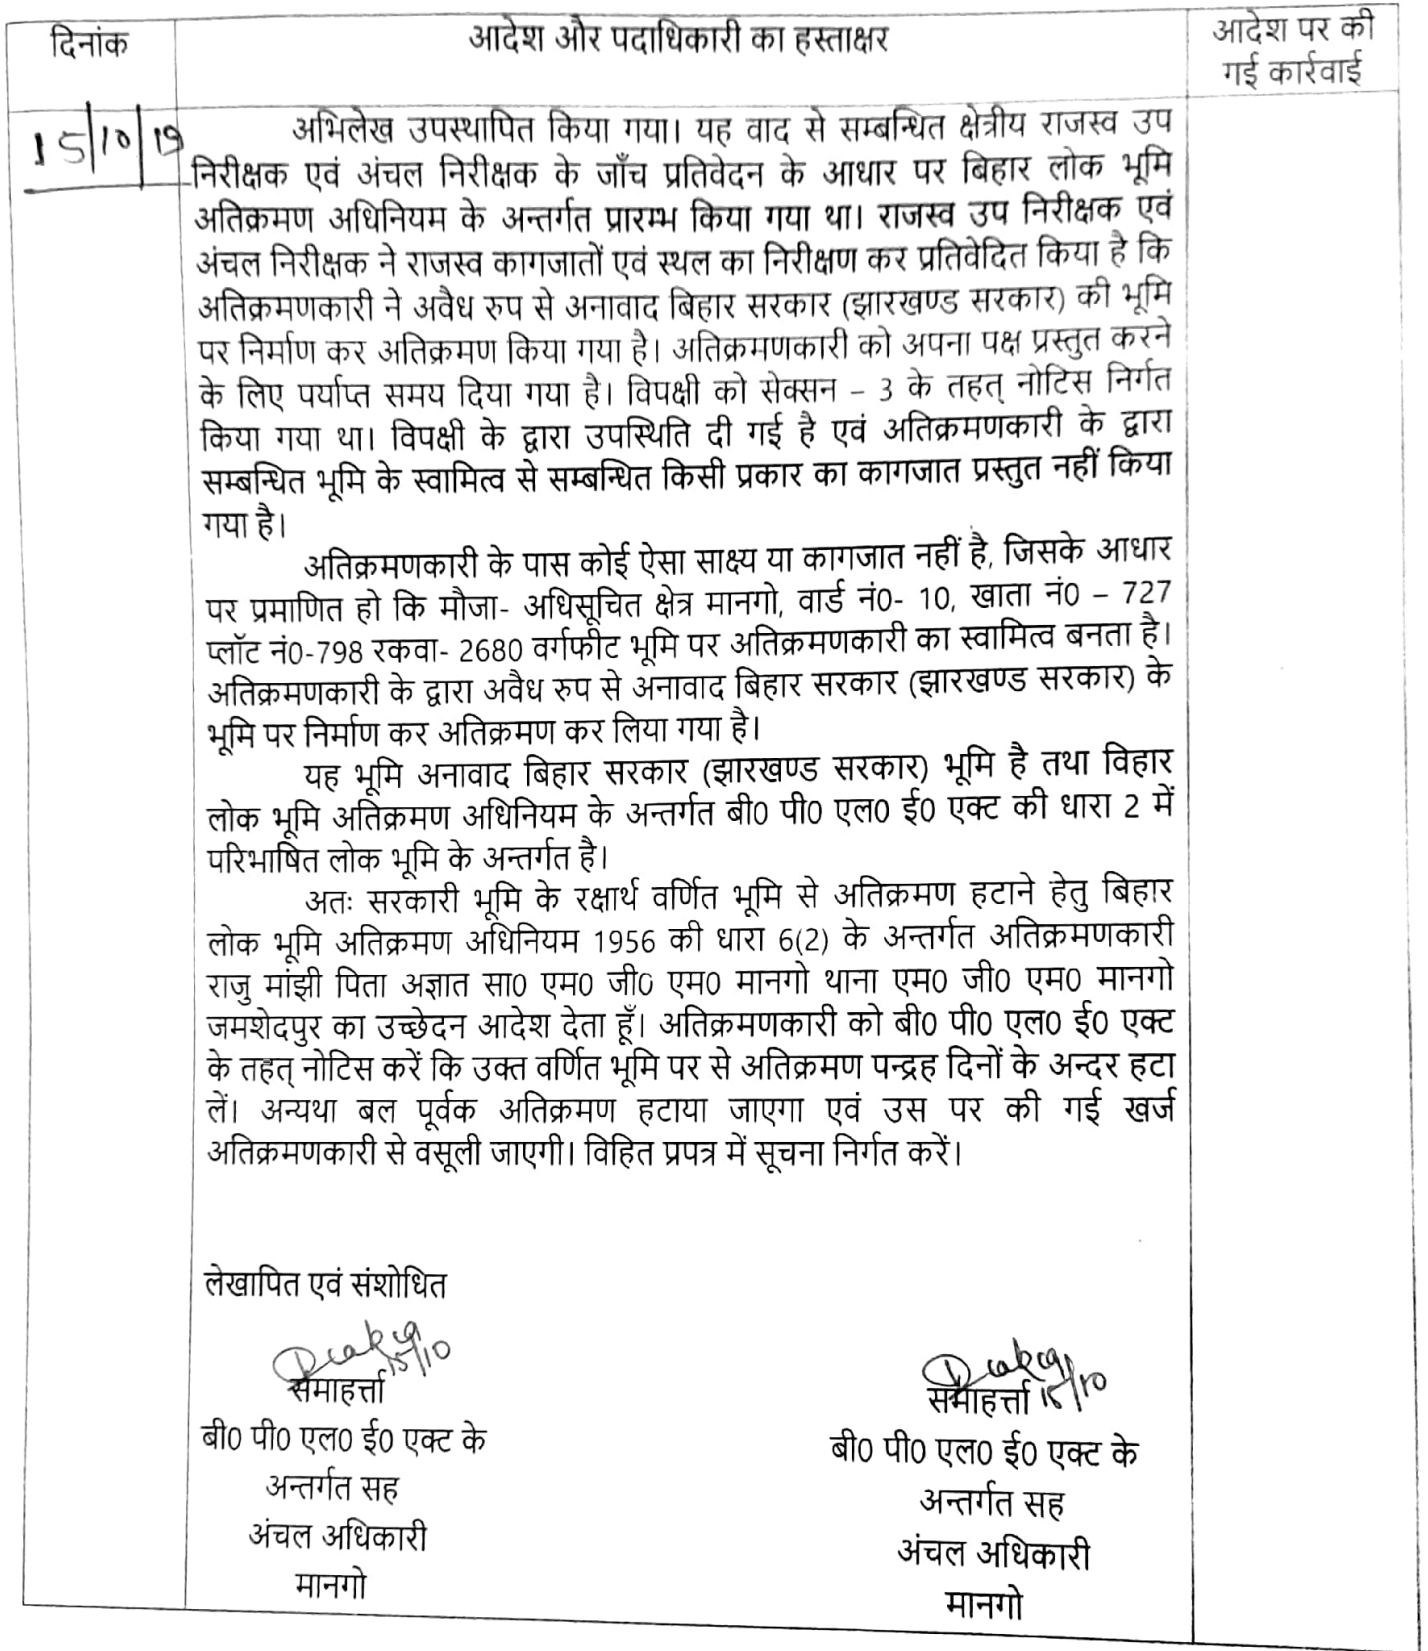 दिनांक
आदेश और पदाधिकारी का हस्ताक्षर
आदेश पर की
गई कार्रवाई
15/10/19
अभिलेख उपस्थापित किया गया। यह वाद से सम्बन्धित क्षेत्रीय राजस्व उप
निरीक्षक एवं अंचल निरीक्षक के जाँच प्रतिवेदन के आधार पर बिहार लोक भूमि
अतिक्रमण अधिनियम के अन्तर्गत प्रारम्भ किया गया था। राजस्व उप निरीक्षक एवं
अंचल निरीक्षक ने राजस्व कागजातों एवं स्थल का निरीक्षण कर प्रतिवेदित किया है कि
अतिक्रमणकारी ने अवैध रुप से अनावाद बिहार सरकार (झारखण्ड सरकार) की भूमि
पर निर्माण कर अतिक्रमण किया गया है। अतिक्रमणकारी को अपना पक्ष प्रस्तुत करने
के लिए पर्याप्त समय दिया गया है। विपक्षी को सेक्सन – 3 के तहत् नोटिस निर्गत
किया गया था। विपक्षी के द्वारा उपस्थिति दी गई है एवं अतिक्रमणकारी के द्वारा
सम्बन्धित भूमि के स्वामित्व से सम्बन्धित किसी प्रकार का कागजात प्रस्तुत नहीं किया
गया है।
अतिक्रमणकारी के पास कोई ऐसा साक्ष्य या कागजात नहीं है, जिसके आधार
पर प्रमाणित हो कि मौजा- अधिसूचित क्षेत्र मानगो, वार्ड नं0- 10, खाता नं0 – 727
प्लॉट नं0-798 रकवा- 2680 वर्गफीट भूमि पर अतिक्रमणकारी का स्वामित्व बनता है।
अतिक्रमणकारी के द्वारा अवैध रुप से अनावाद बिहार सरकार (झारखण्ड सरकार) के
भूमि पर निर्माण कर अतिक्रमण कर लिया गया है।
यह भूमि अनावाद बिहार सरकार (झारखण्ड सरकार) भूमि है तथा विहार
लोक भूमि अतिक्रमण अधिनियम के अन्तर्गत बी0 पी0 एल0 ई0 एक्ट की धारा 2 में
परिभाषित लोक भूमि के अन्तर्गत है।
अतः सरकारी भूमि के रक्षार्थ वर्णित भूमि से अतिक्रमण हटाने हेतु बिहार
लोक भूमि अतिक्रमण अधिनियम 1956 की धारा 6(2) के अन्तर्गत अतिक्रमणकारी
राजु मांझी पिता अज्ञात सा0 एम0 जी0 एम0 मानगो थाना एम0 जी0 एम0 मानगो
जमशेदपुर का उच्छेदन आदेश देता हूँ। अतिक्रमणकारी को बी0 पी0 एल0 ई0 एक्ट
के तहत् नोटिस करें कि उक्त वर्णित भूमि पर से अतिक्रमण पन्द्रह दिनों के अन्दर हटा
लें। अन्यथा बल पूर्वक अतिक्रमण हटाया जाएगा एवं उस पर की गई खर्ज
अतिक्रमणकारी से वसूली जाएगी। विहित प्रपत्र में सूचना निर्गत करें।
लेखापित एवं संशोधित
15/10
समाहर्त्ता
बी0 पी0 एल0 ई0 एक्ट के
अन्तर्गत सह
अंचल अधिकारी
मानगो
15/10
समाहर्त्ता
बी0 पी0 एल0 ई0 एक्ट के
अन्तर्गत सह
अंचल अधिकारी
मानगो